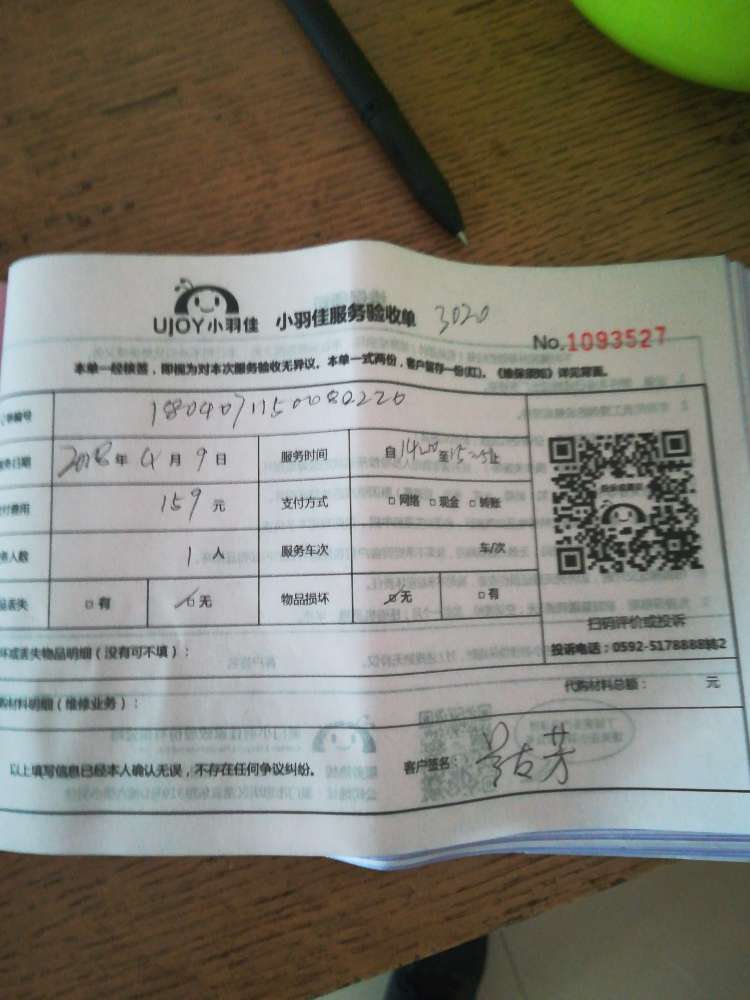 UJOY小羽佳 小羽佳服务验收单 3020
No.1093527
本单一经核签，即视为对本次服务验收无异议。本单一式两份，客户留存一份(红)。《维保须知》详见背面。
单编号
务日期 2018年4月9日 服务时间 自14:00至
付费用 159元 支付方式 □网络 □现金 □转账
务人数 1人 服务车次 车/次
品丢失 □有 □无 物品损坏 □无 □有
扫码评价或投诉
投诉电话：0592-5178888转2
坏或丢失物品明细（没有可不填）：
购材料明细（维修业务）： 代购材料总额： 元
以上填写信息已经本人确认无误，不存在任何争议纠纷。 客户签名：